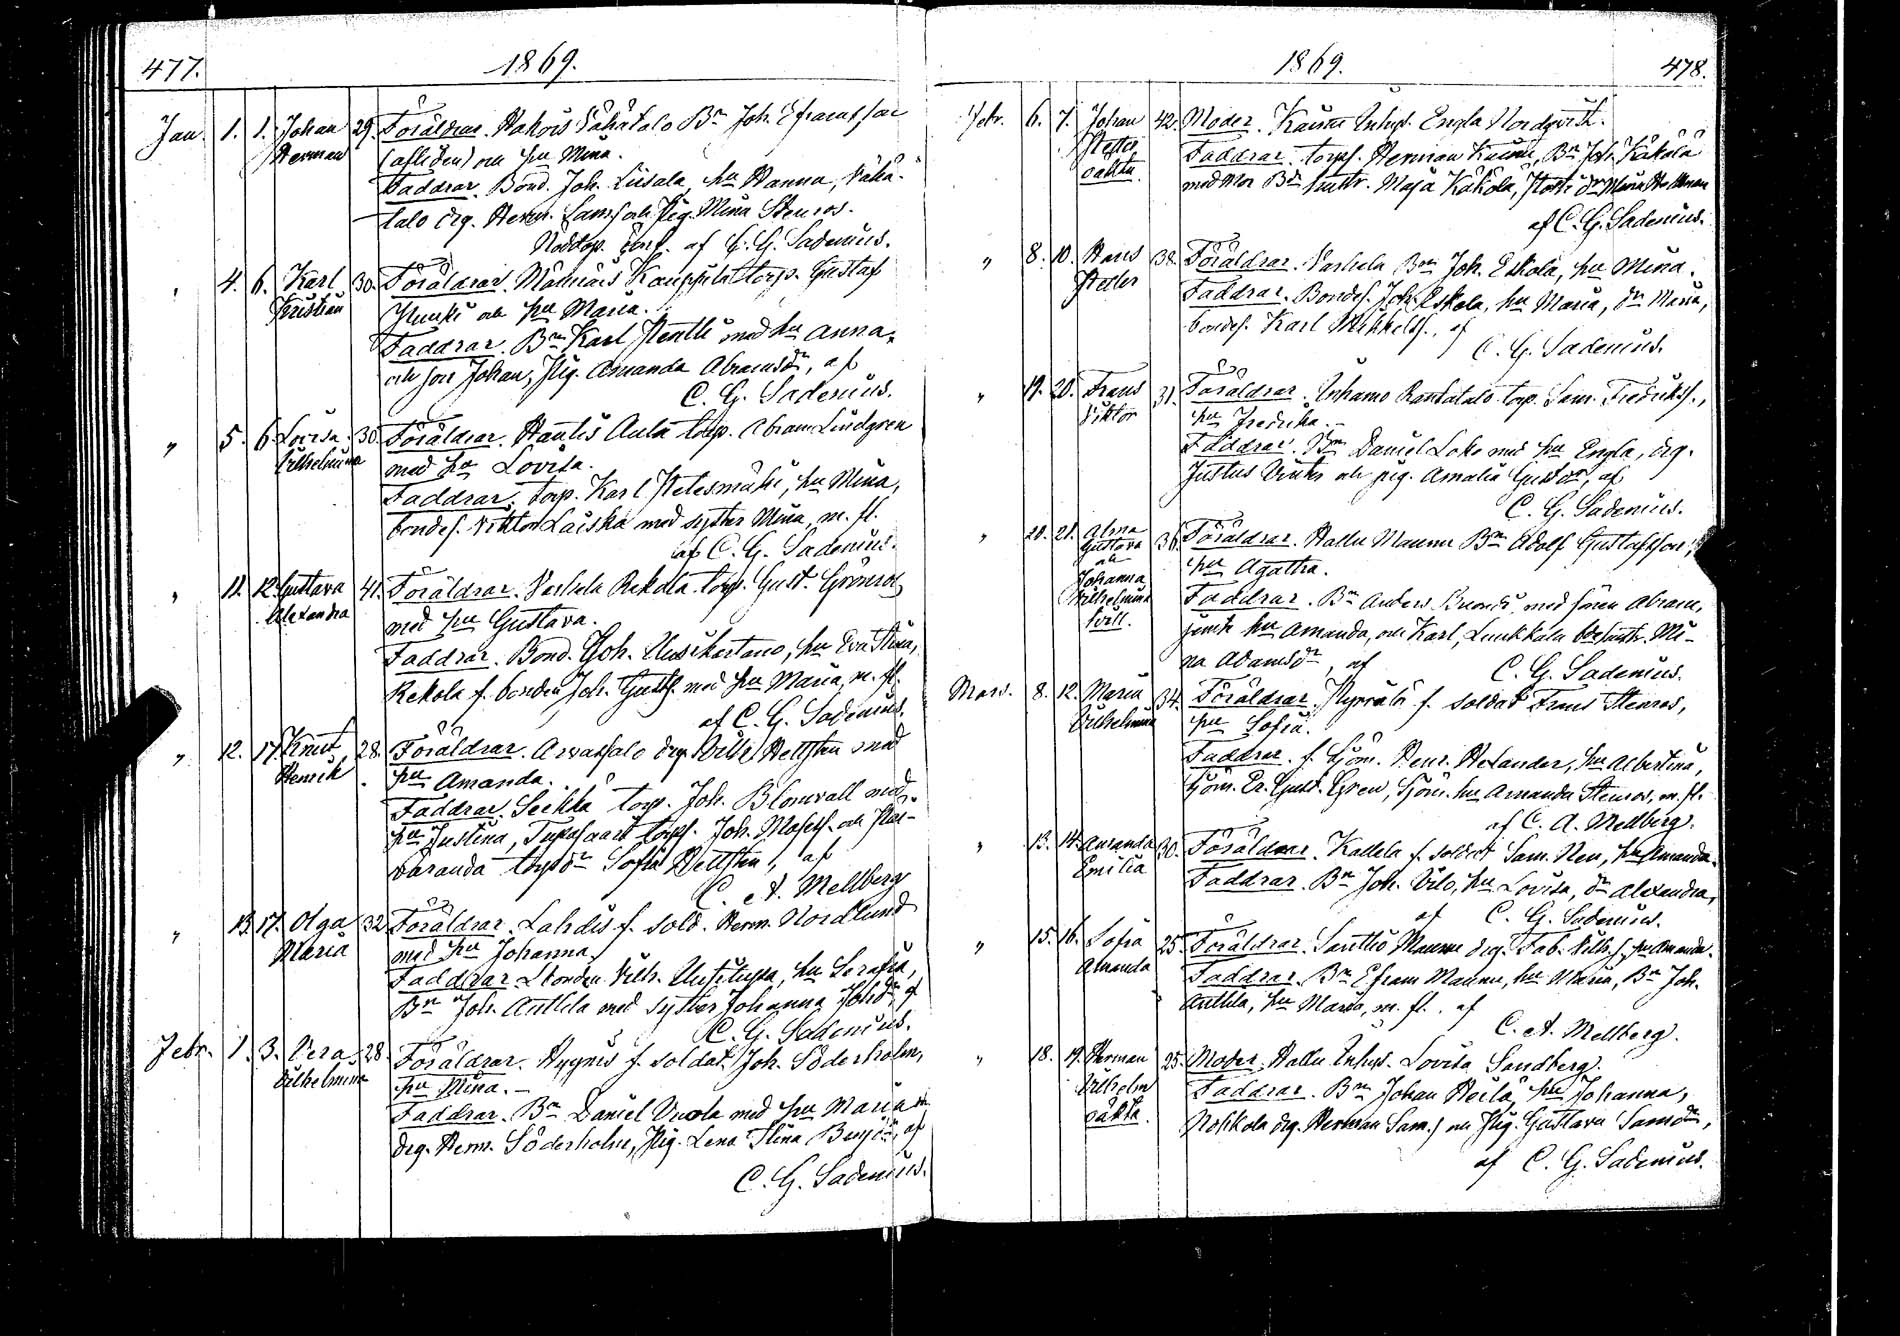 477.
1869.
Jan. 1. 1. Johan Herman 29. Föräldrar. Hakois Vähätalo Bn Joh. Efraimsson
(afliden) och hu Mina.
Faddrar. Bond. Joh. Liisala, hu Hanna, Vähä-
talo drg. Herm. Sams. och Pig. Mina Stenros.
Nöddop. conf. af C. G. Sadenius.
" 4. 6. Karl Kristian 30. Föräldrar. Männäis Kauppila torp. Gustaf
och hu Maria.
Faddrar. Bn Karl Pentti med hu Anna,
och son Johan, Pig. Amanda Abramsdr, af
C. G. Sadenius.
" 5. 6. Lovisa Vilhelmina 30. Föräldrar. Hautis Anta torp. Abram Lindgren
med hu Lovisa.
Faddrar. torp. Karl Petesmäki, hu Mina,
bondes. Viktor Laiska med syster Mina, m. fl.
af C. G. Sadenius.
" 11. 12. Gustava Alexandra 41. Föräldrar. Varhela Rekola torp. Gust. Grönros
med hu Gustava.
Faddrar. Bond. Joh. Uusikartano, hu Eva Stina,
Rekola f. bonden Joh. Gusts. med hu Maria, m. fl.
af C. G. Sadenius.
" 12. 17. Knut Henrik 28. Föräldrar. Arvassalo drg. Vilh. Hellsten med
hu Amanda.
Faddrar. Seikka torp. Joh. Blomvall med
hu Justina, torps. Joh. Mosess. och
varanda torpdr Sofia Hellsten, af
C. A. Mellberg
" 13. 17. Olga Maria 32. Föräldrar. Lahdis f. sold. Herm. Nordlund
med hu Johanna.
Faddrar. Vilh. Uusitupa, hu Serafia,
Bn Joh. Anttila med syster Johanna Johdr, af
C. G. Sadenius.
Febr. 1. 3. Vera Vilhelmina 28. Föräldrar. Hygnis f. soldat Joh. Söderholm,
hu Mina.
Faddrar. Bn Daniel Uvola med hu Maria
drg. Herm. Söderholm, Pig. Lena Stina Benjdr, af
C. G. Sadenius.
1869.
478.
Febr. 6. 7. Johan Petter oäkta. 42. Moder. Kaunu Inhys. Engla Nordqvist.
Faddrar. torps. Herman Kaunu, Bn Joh. Käkölä
med mor Bd hustr. Maja Käkölä, dr Maria Hellman
af C. G. Sadenius.
" 8. 10. Hans Petter 38. Föräldrar. Varhela Bn Joh. Eskola, hu Mina.
Faddrar. Bondes. Joh. Eskola, hu Maria, dr Maria,
bondes. Karl Mikkels. af
C. G. Sadenius.
" 19. 20. Frans Viktor 31. Föräldrar. Inhamo Rantatalo torp. Sam. Fredrikss.,
hu Fredrika.
Faddrar. Bn Daniel Loke med hu Engla, drg.
Justus Vinter och pig. Amalia Gustdr, af
C. G. Sadenius.
" 20. 21. Alma Gustava och Johanna Vilhelmina tvill. 36. Föräldrar. Hallu Maunu Bn Adolf Gustafsson,
hu Agatha.
Faddrar. Bn Anders med sonen Abram,
jemte hu Amanda, och Karl, Luukkala bdehustr. Mi-
na Adamsdr, af
C. G. Sadenius.
Mars. 8. 12. Maria Vilhelmina 34. Föräldrar. f. soldat Frans Stenros,
hu Sofia.
Faddrar. f. Sjöm. Henr. Helander, hu Albertina,
Sjöm. Er. Gust. Gren, Sjöm. hu Amanda Stenros, m. fl.
af C. A. Mellberg.
" 13. 14. Amanda Emilia 30. Föräldrar. Kallela f. soldat Sam. Neu, hu Amanda.
Faddrar. Bn Joh. Vilo, hu Lovisa, dr Alexandra,
af C. G. Sadenius.
" 15. 16. Sofia Amanda 25. Föräldrar. Santtio Maunu drg. Fab. Vilhs., hu Amanda.
Faddrar. Bn Efraim Maunu, hu Maria, Bn Joh.
Anttila, hu Maria, m. fl. af
C. A. Mellberg.
" 18. 19. Herman Vilhelm oäkta. 25. Moder. Hallu Inhys. Lovisa Sandberg.
Faddrar. Bn Johan Heilä, hu Johanna,
Nohkola drg. Herman Sams. och Pig. Gustava Samsdr,
af C. G. Sadenius.